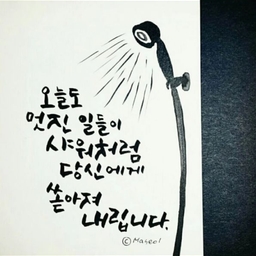 오늘도
멋진 일들이
샤워처럼
당신에게
쏟아져
내립니다.
© Maseol